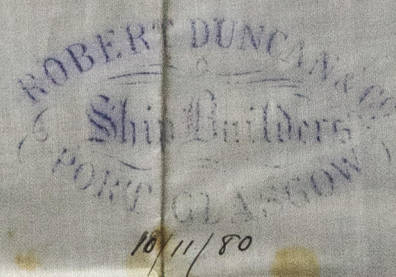 ROBERT DUNCAN & CO
Ship Builders
PORT GLASGOW
10/11/80